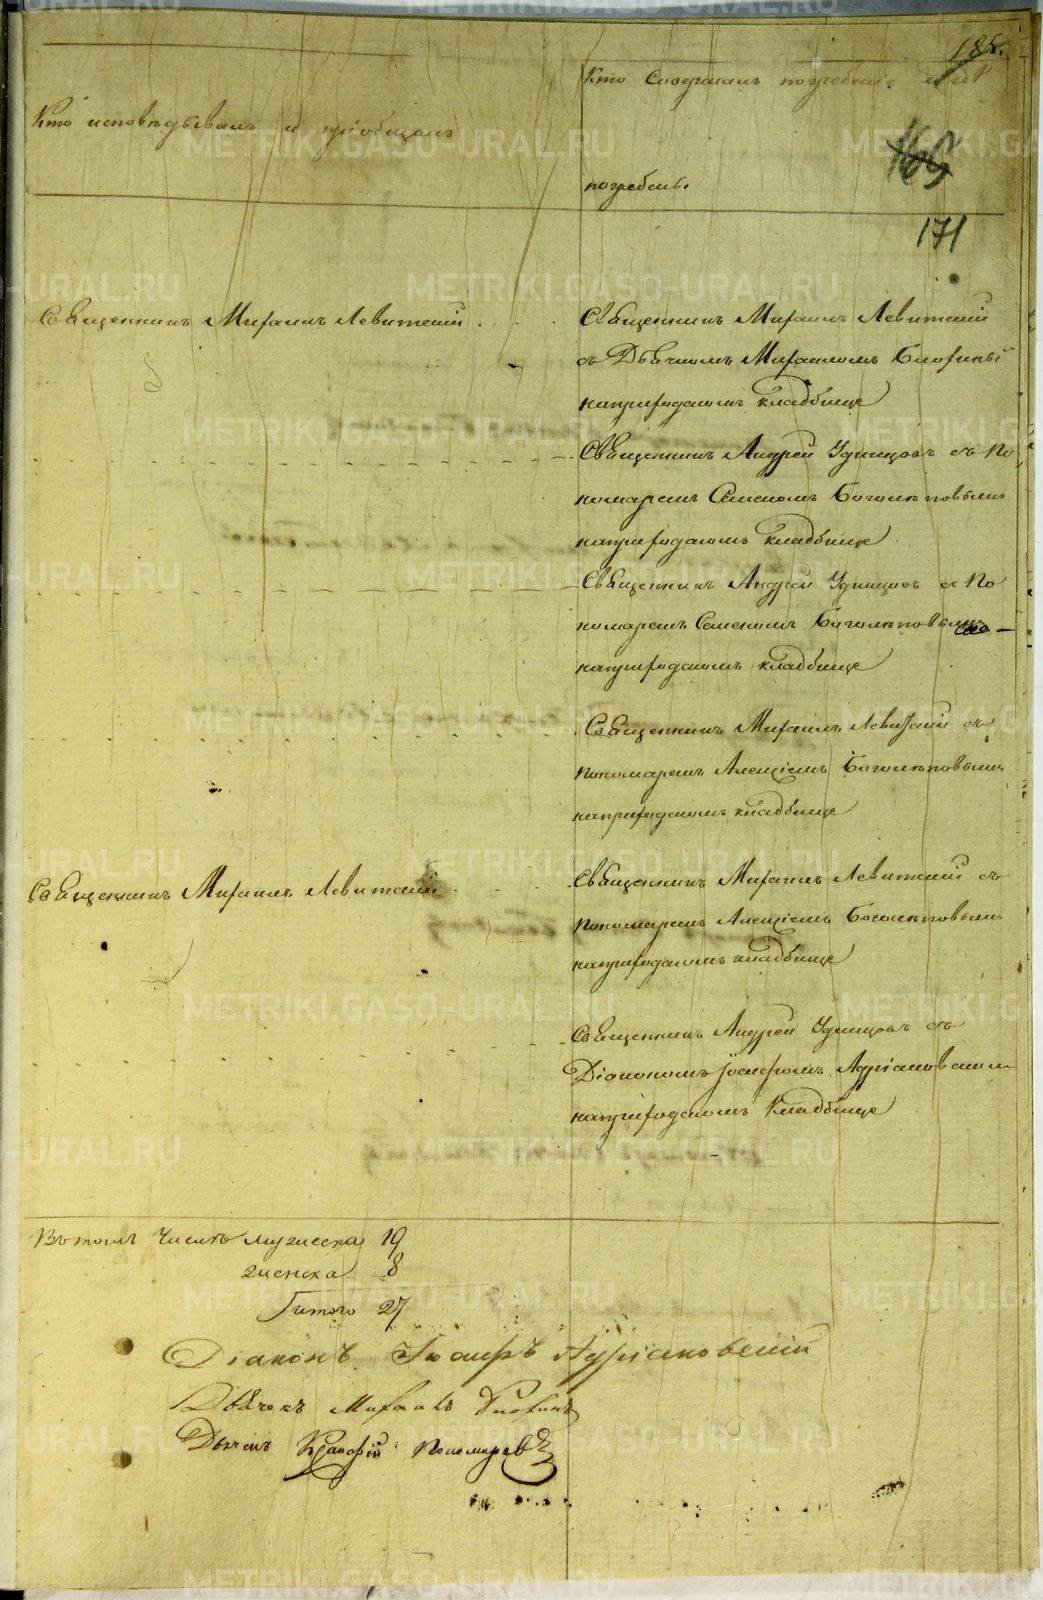 185.
Кто исповѣдывалъ и пріобщалъ
Кто совершалъ погребеніе и гдѣ
погребены.
165
171
Священникъ Михаилъ Левитскій
Священникъ Михаилъ Левитскій
съ Дьячкомъ Михаиломъ
на приходскомъ кладбище
Священникъ Андрей Удинцовъ съ По
номаремъ Семеномъ Боголѣповымъ
на приходскомъ кладбище
Священникъ Андрей Удинцовъ съ По
номаремъ Семеномъ Боголѣповымъ
на приходскомъ кладбище
Священникъ Михаилъ Левитскій съ
Пономаремъ Алексіемъ Боголѣповымъ
на приходскомъ кладбище
Священникъ Михаилъ Левитскій
Священникъ Михаилъ Левитскій съ
Пономаремъ Алексіемъ Боголѣповымъ
на приходскомъ кладбище
Священникъ Андрей Удинцовъ съ
Діакономъ Іосифомъ Адріановскимъ
на приходскомъ Кладбище
Въ томъ числѣ мужеска 19
женска 8
Итого 27
Діаконъ Іосифъ Адріановскій
Дьячекъ Михаилъ
Дьячекъ Пономаревъ
METRIKI.GASO-URAL.RU